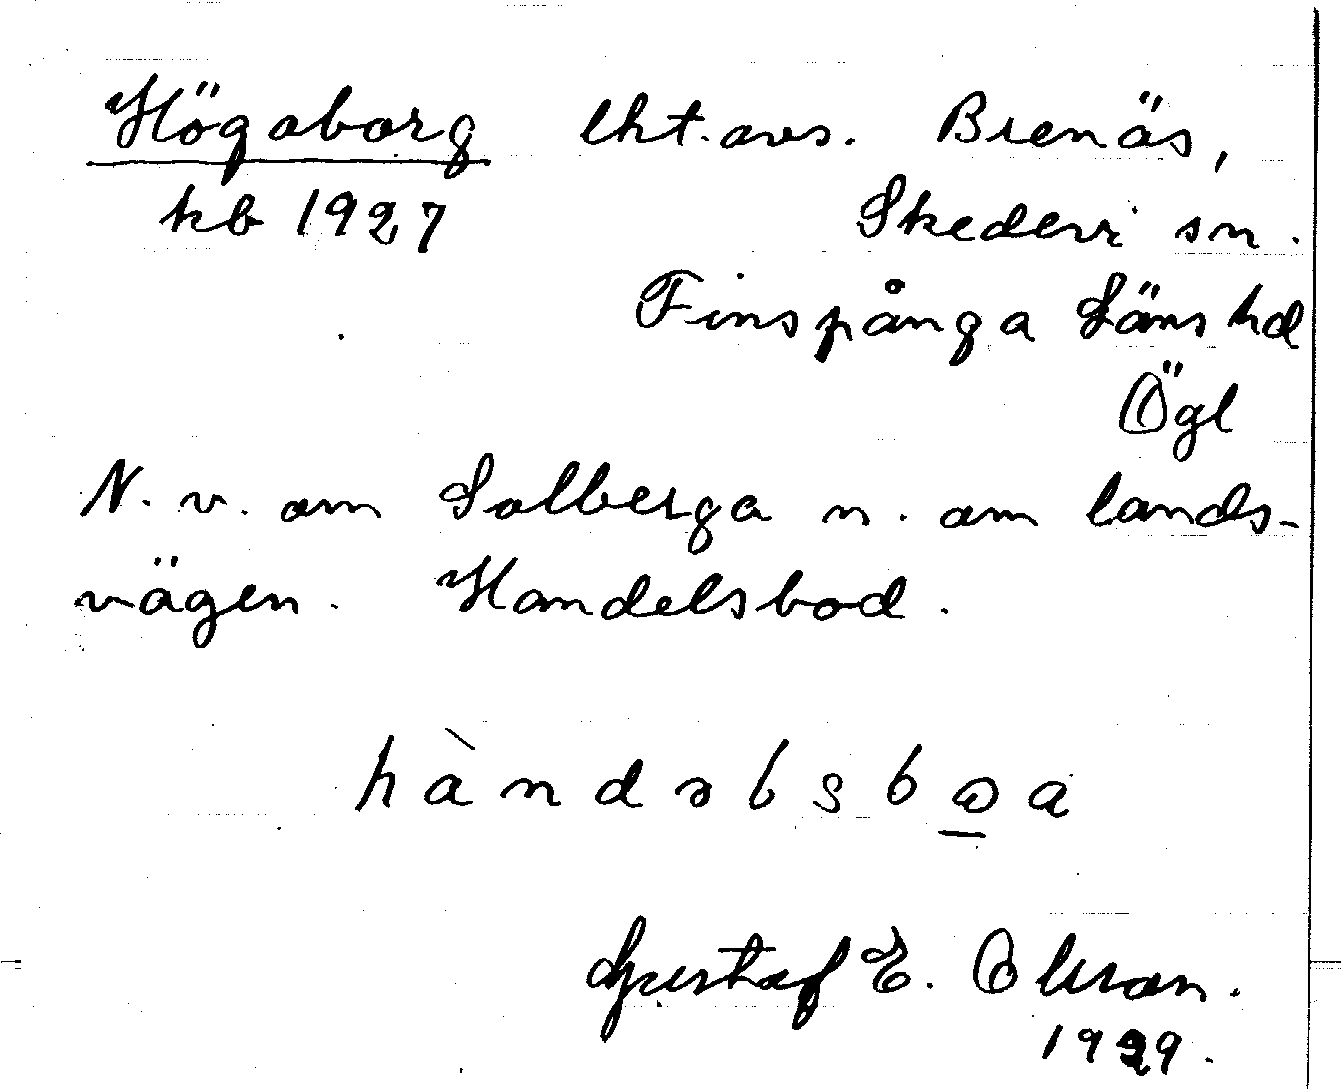 Högaborg lht. avs. Brenäs,
kb 1927 Skedevi sn.
Finspånga Läns hd
Ögl
N. v. om Solberga n. om lands-
vägen. Handelsbod.
hàndəlsbo̲a
Gustaf E. Olsson.
1929.